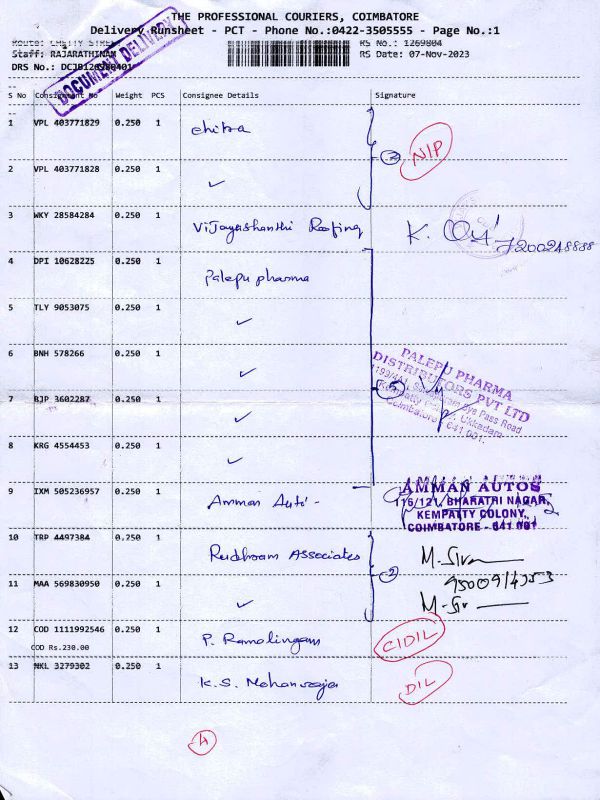 THE PROFESSIONAL COURIERS, COIMBATORE
Delivery Runsheet - PCT - Phone No.:0422-3505555 - Page No.:1
Route: CHETTY STREET RS No.: 1269804
Staff: RAJARATHINAM RS Date: 07-Nov-2023
DRS No.:
DOCUMENT DELIVERY
S No Consignment No Weight PCS Consignee Details Signature
1 VPL 403771829 0.250 1 chitra
2 NIP
2 VPL 403771828 0.250 1 ✓
3 WKY 28584284 0.250 1 Vijayashanthi Roofing K.
7200248888
4 DPI 10628225 0.250 1 Palepu pharma
5 TLY 9053075 0.250 1 ✓
6 BNH 578266 0.250 1 ✓
PALEPU PHARMA
DISTRIBUTORS PVT LTD
Bye Pass Road
Ukkadam
Coimbatore - 641 001.
7 BJP 3602287 0.250 1 ✓
8 KRG 4554453 0.250 1 ✓
9 IXM 505236957 0.250 1 Amman Auto -
AMMAN AUTOS
116/121, BHARATHI NAGAR,
KEMPATTY COLONY,
COIMBATORE - 641 001
10 TRP 4497384 0.250 1 Rudhram Associates M. Siva
2
11 MAA 569830950 0.250 1 ✓ M. Siv
12 COD 1111992546 0.250 1 P. Ramalingam CIDIL
COD Rs.230.00
13 NKL 3279302 0.250 1 K.S. Mohanraja DIL